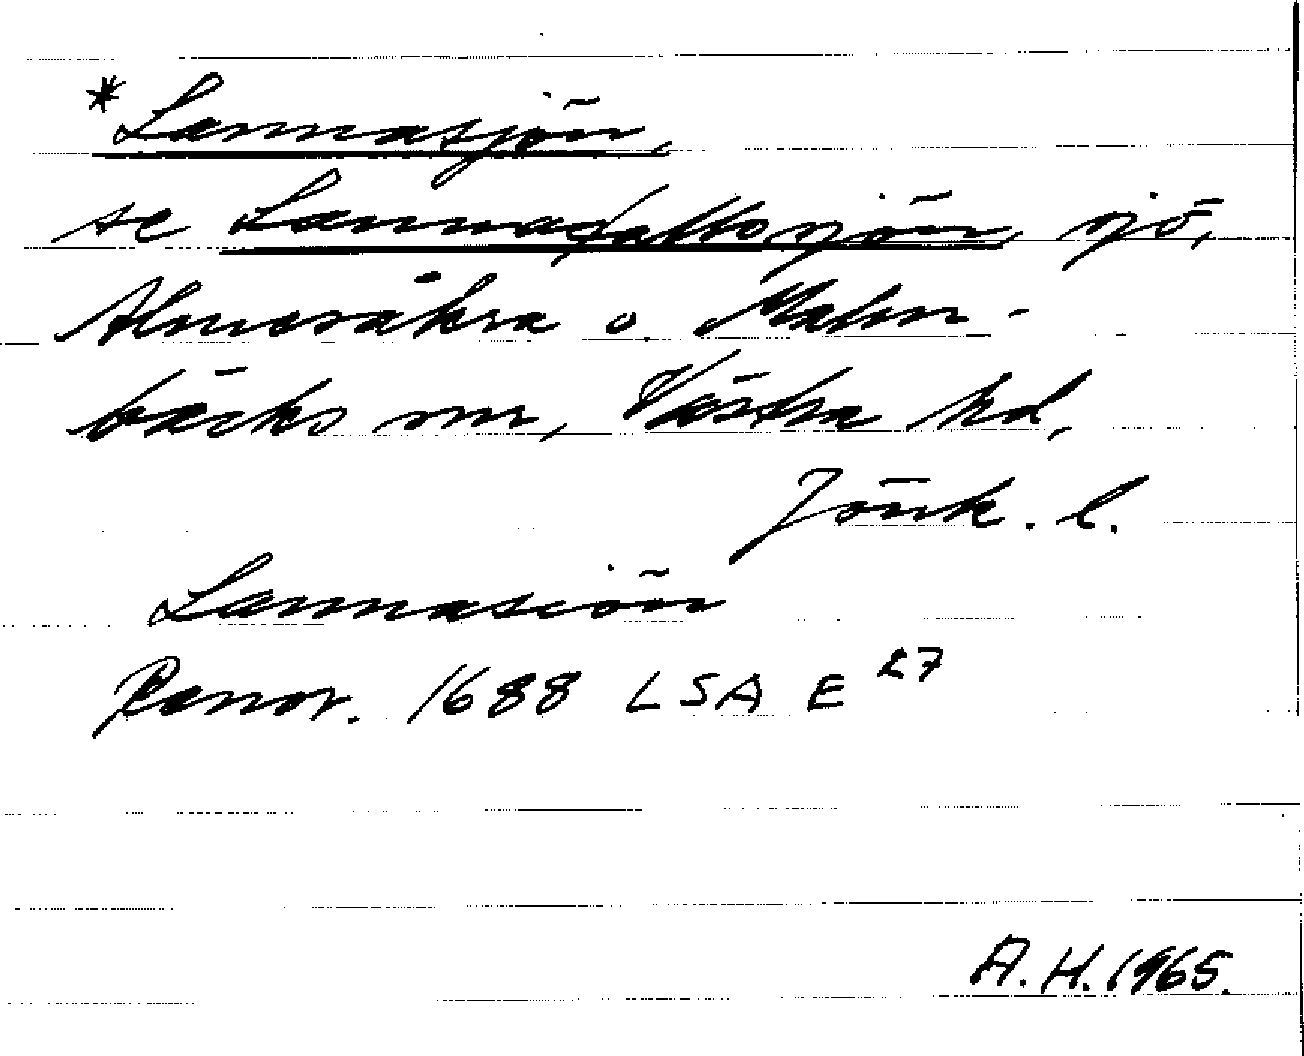 *Lannasjön,
se Lannaskaftssjön, sjö,
Almesåkra o. Malm-
bäcks snr, Västra hd,
Jönk. l.
Lannasiön
Rannr. 1688 LSA E 27
A.H. 1965.